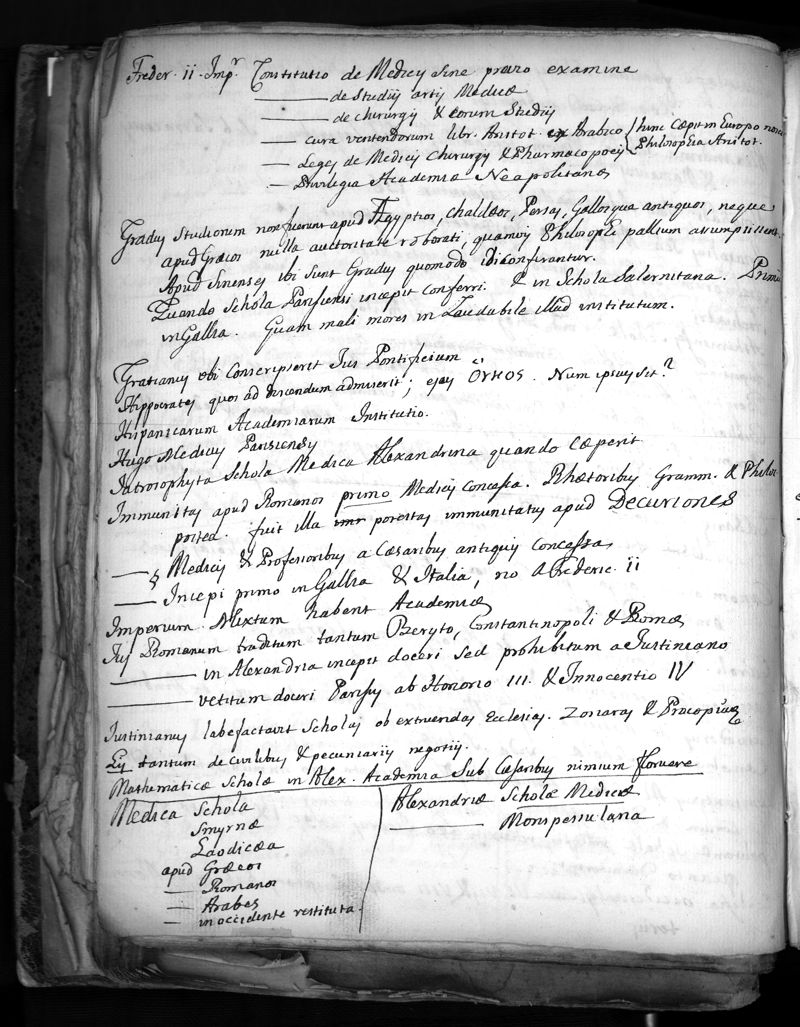 Freder. ii. Impr. Constitutio de Medicis sine prævio examine
——— de Studiis artis Medicæ
——— de chirurgis & eorum Studiis
— cura vertendorum libr. Aristot. ex Arabico } hinc Cæpit in Europa nova
— Leges de Medicis Chirurgis & Pharmacopœis } Philosophia Aristot.
— Privilegia Academiæ Neapolitanæ
Gradus Studiorum non fuerunt apud Ægyptios, Chaldæos, Persas, Gallosque antiquos, neque
apud Græcos nulla auctoritate roborati, quamvis Philosophi pallium assumpsissent.
Apud Sinenses ibi sunt Gradus quomodo ibi conferantur.
Quando Schola Parisiensi incæpit conferri. & in Schola Salernitana. Primi
in Gallia. Quam mali mores in Laudabile illud institutum.
Gratianus ubi Conscripserit Jus Pontificium
Hippocrates quos ad discendum admiserit; ejus Όρκος. Num ipsius sit?
Hispanicarum Academiarum Institutio.
Hugo Medicus Parisiensis
Iatrosophista Schola Medica Alexandrina quando Cæperit
Immunitas apud Romanos primo Medicis Concessa. Rhætoribus Gramm. & Philos
postea. fuit illa potestas immunitatis apud Decuriones
—— § Medicis & Professoribus a Cæsaribus antiquis Concessa
—— Incepi primo in Gallia & Italia, no A Frederic. ii
Imperium Mixtum habent Academiæ
Jus Romanum traditum tantum Beryto, Constantinopoli & Romæ
——— in Alexandria incepit doceri sed prohibitum a Justiniano
——— vetitum doceri Parisiis ab Honorio III. & Innocentio IV
Justinianus labefactavit Scholas ob extruendas Ecclesias. Zonaras & Procopius
Lis tantum de Civilibus & pecuniariis negotiis.
Mathematicæ Scholæ in Alex. Academia Sub Cæsaribus nimium floruere
Medica Schola
Smyrnæ
Laodicæa
apud Græcos
— Romanos
— Arabes
— in occidente restituta.
Alexandriæ Scholæ Medicæ
——— Monspessulana